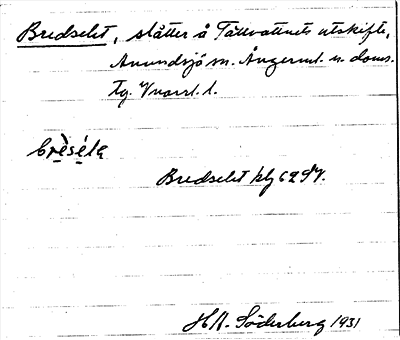 Bredselet, slåtter å Tällvattnets utskifte,
Anundsjö sn. Ångerml. n. doms.
tg. Vnorrl. l.
brèséla
Bredselet blj 62 SV.
H. Söderberg 1931